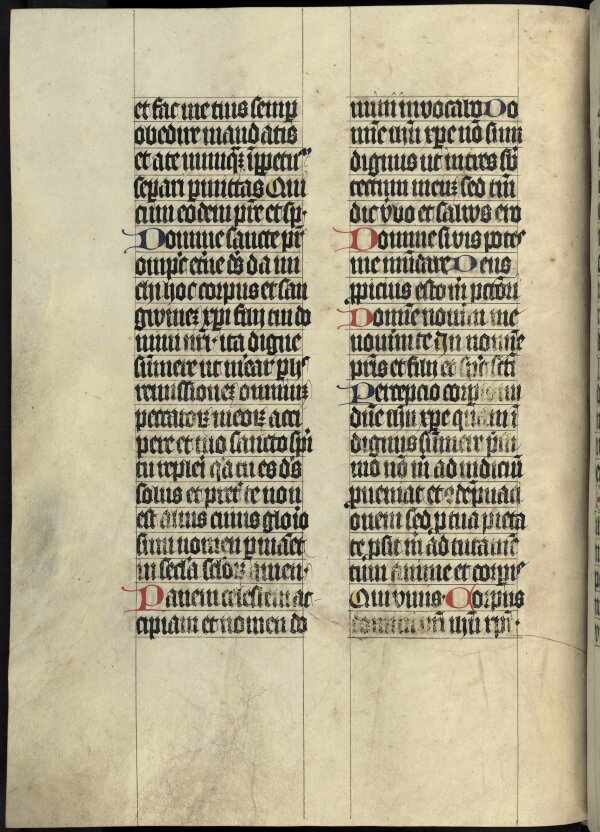 et fac me tuis semp
obedire mandatis
et a te nunuqȝ ī ꝑpetuū
separi p̄mittas Qui
cum eodem pr̄e et sp̄.
Domine sancte pr̄
om̄pc̄ et̄ne ds̄ da mi
chi hoc corpus et san
gwineȝ xp̄i filij tui do
mini nr̄i ita digne
sūmere ut mear̄ ꝑ h⁹
remissioneȝ omniuȝ
peccatoꝝ meoꝝ acci
pere et tuo sancto sp̄u
tu repleri q̄a tu es ds̄
solus et pret̄ te non
est alius cuius glorio
sum nomen ꝑmanet
in secl̄a sel̄oꝝ amen
Panem celestem ac
cipiam et nomen do
mini invocabo Do
mīe ih̄u xp̄e nō sum
dignus ut intres sb̄
tectum meuȝ sed tm̄
dic v̄bo et salvus ero
Domine si vis potes
me mūdare Deus
ꝓpicius esto m̄ pctōri
Domīe novim me
novim te In nomīe
pr̄is et filij et sp̄c sc̄ti
Percepcio corporis tui
dn̄e ih̄u xp̄e quam ī
dignus sūmere p̄su
mo nō m̄ ad iudiciū
ꝓveniat et ꝯdēpnaci
onem sed ꝓ tua pieta
te ꝓsit m̄ ad tutamē
tum anime et corpis
Qui vivis Corpus
domini nr̄i ih̄u xp̄i